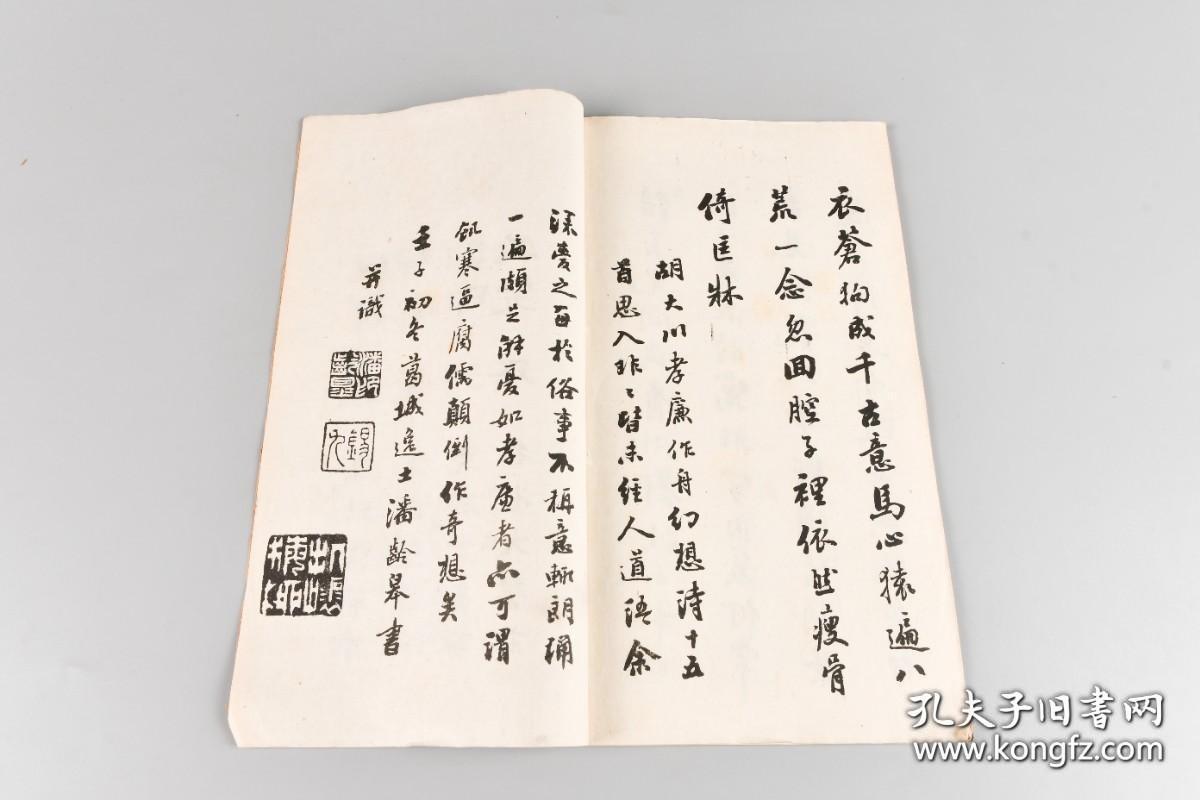 衣蒼狗成千古意馬心猿遍八
荒一念忽回腔子裡依然瘦骨
倚匡牀
胡大川孝廉作舟幻想詩十五
首思入非〻皆未經人道語余
深愛之每於俗事不稱意輒朗誦
一遍頗足解憂如孝廉者亦可謂
飢寒逼腐儒顛倒作奇想矣
壬子初冬葛城逸士潘齡皋書
并識
潘齡皋
錫九
孔夫子旧书网
www.kongfz.com